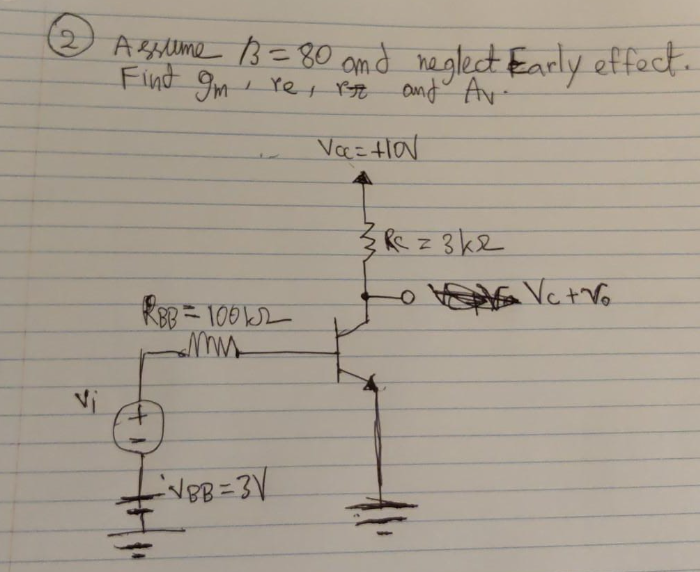 2 Assume β = 80 and neglect Early effect.
Find gm, re, rπ and Av.
Vcc = +10V
Rc = 3kΩ
Vc + vo
RBB = 100kΩ
vi
+
-
VBB = 3V